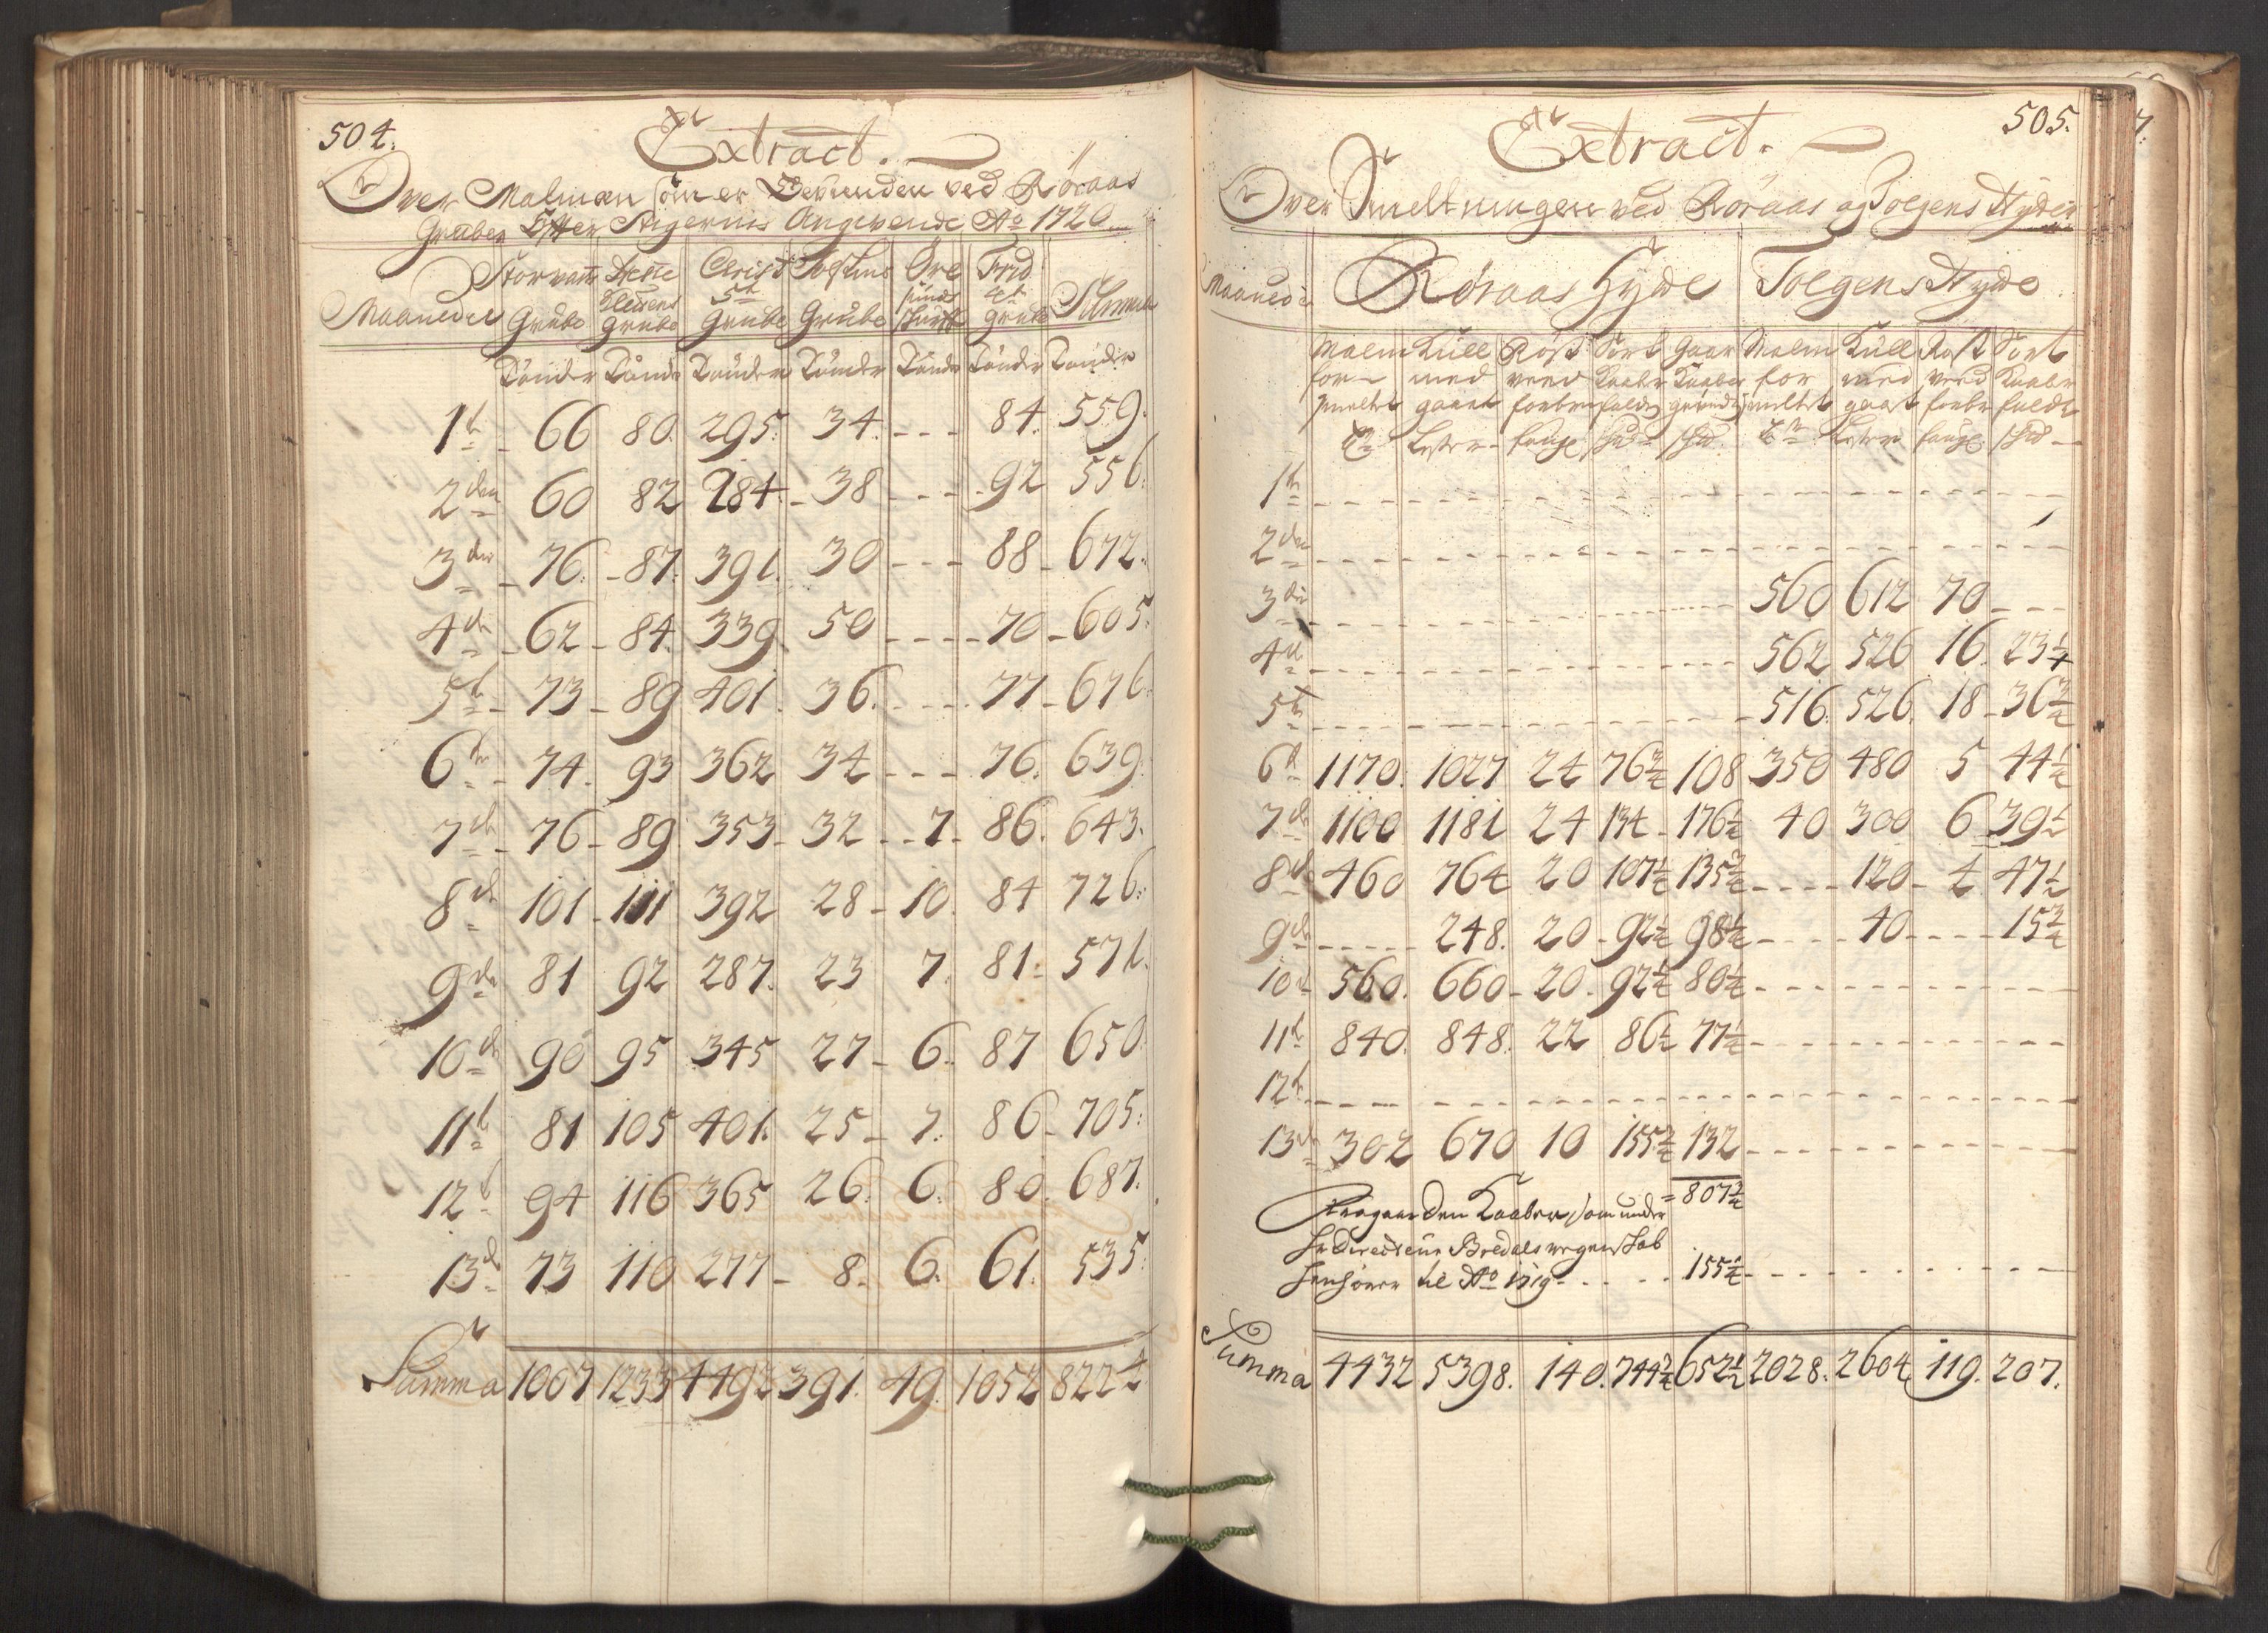 504.
Extract.
Over Malmen som er Vevunden ved Röraas
Gruber Efter Stigernis Angivende Ao 1720
Maaneder Storvatz Grube Hestkleiens Grube Christ 5t Grube Grube Öre sunds Frid 4t Grube Summa
Tönder Tönder Tönder Tönder Tönder Tönder Tönder
1t 66 80. 295. 34. - - - 84. 559.
2den 60 82 284. 38 - - - 92 556.
3die 76. 87. 391. 30 - - - 88 672.
4de 62 84. 339. 50 - - - 70 605.
5t 73 89 401. 36. - - - 77 676.
6te 74. 93 362 34 - - - 76. 639.
7de 76 89 353 32 - - 7 86. 643.
8de 101 111 392 28 10. 84 726.
9de 81 92 287. 23 7. 81. 571.
10de 90 95 345 27 6. 87 650.
11t 81 105 401. 25 7. 86 705.
12t 94 116 365 26. 6. 80. 687.
13de 73 110 277 8. 6. 61. 535.
Summa 1007 1233 4492 391. 49. 1052 8224
505.
Extract.
Over Smeltningen ved Röraas og Tolgens Hyder
Maaneder Röraas Hyde Tolgens Hyde
Malm Kull Röst Sort Gaar Malm Kull Rost Sort
for med veed Kaaber Kaaber for med veed Kaaber
smeltet gaaet forbr faldes smeltet gaaet forbr faldet
1te - - -
2den - - -
3die - - - 560 612 70 - - -
4de - - - 562 526 16. 23 1/4
5te - - - 516. 526. 18 36 3/4
6te 1170. 1027 24 76 3/4 108 350 480 5 44 1/2
7de 1100 1181 24 134 176 1/2 40 300 6 39 1/2
8de 460 764 20 107 1/4 135 3/4 - - - 120 4 47 1/2
9de - - - 248. 20 92 1/4 98 1/2 - - - 40 - - - 15 3/4
10de 560. 660 20 92 1/4 80 1/4 - - -
11te 840. 848. 22 86 1/2 77 1/4 - - -
12te - - -
13de 302 670 10 155 3/4 132 - - -
= 807 3/4
Den Kaaber som under
Hr Directeur Bredals regenskab
henhörer til Ao 1719 - - - 155 1/4 - - -
Summa 4432 5398. 140. 744 3/4 652 1/2 2028. 2604 119. 207.